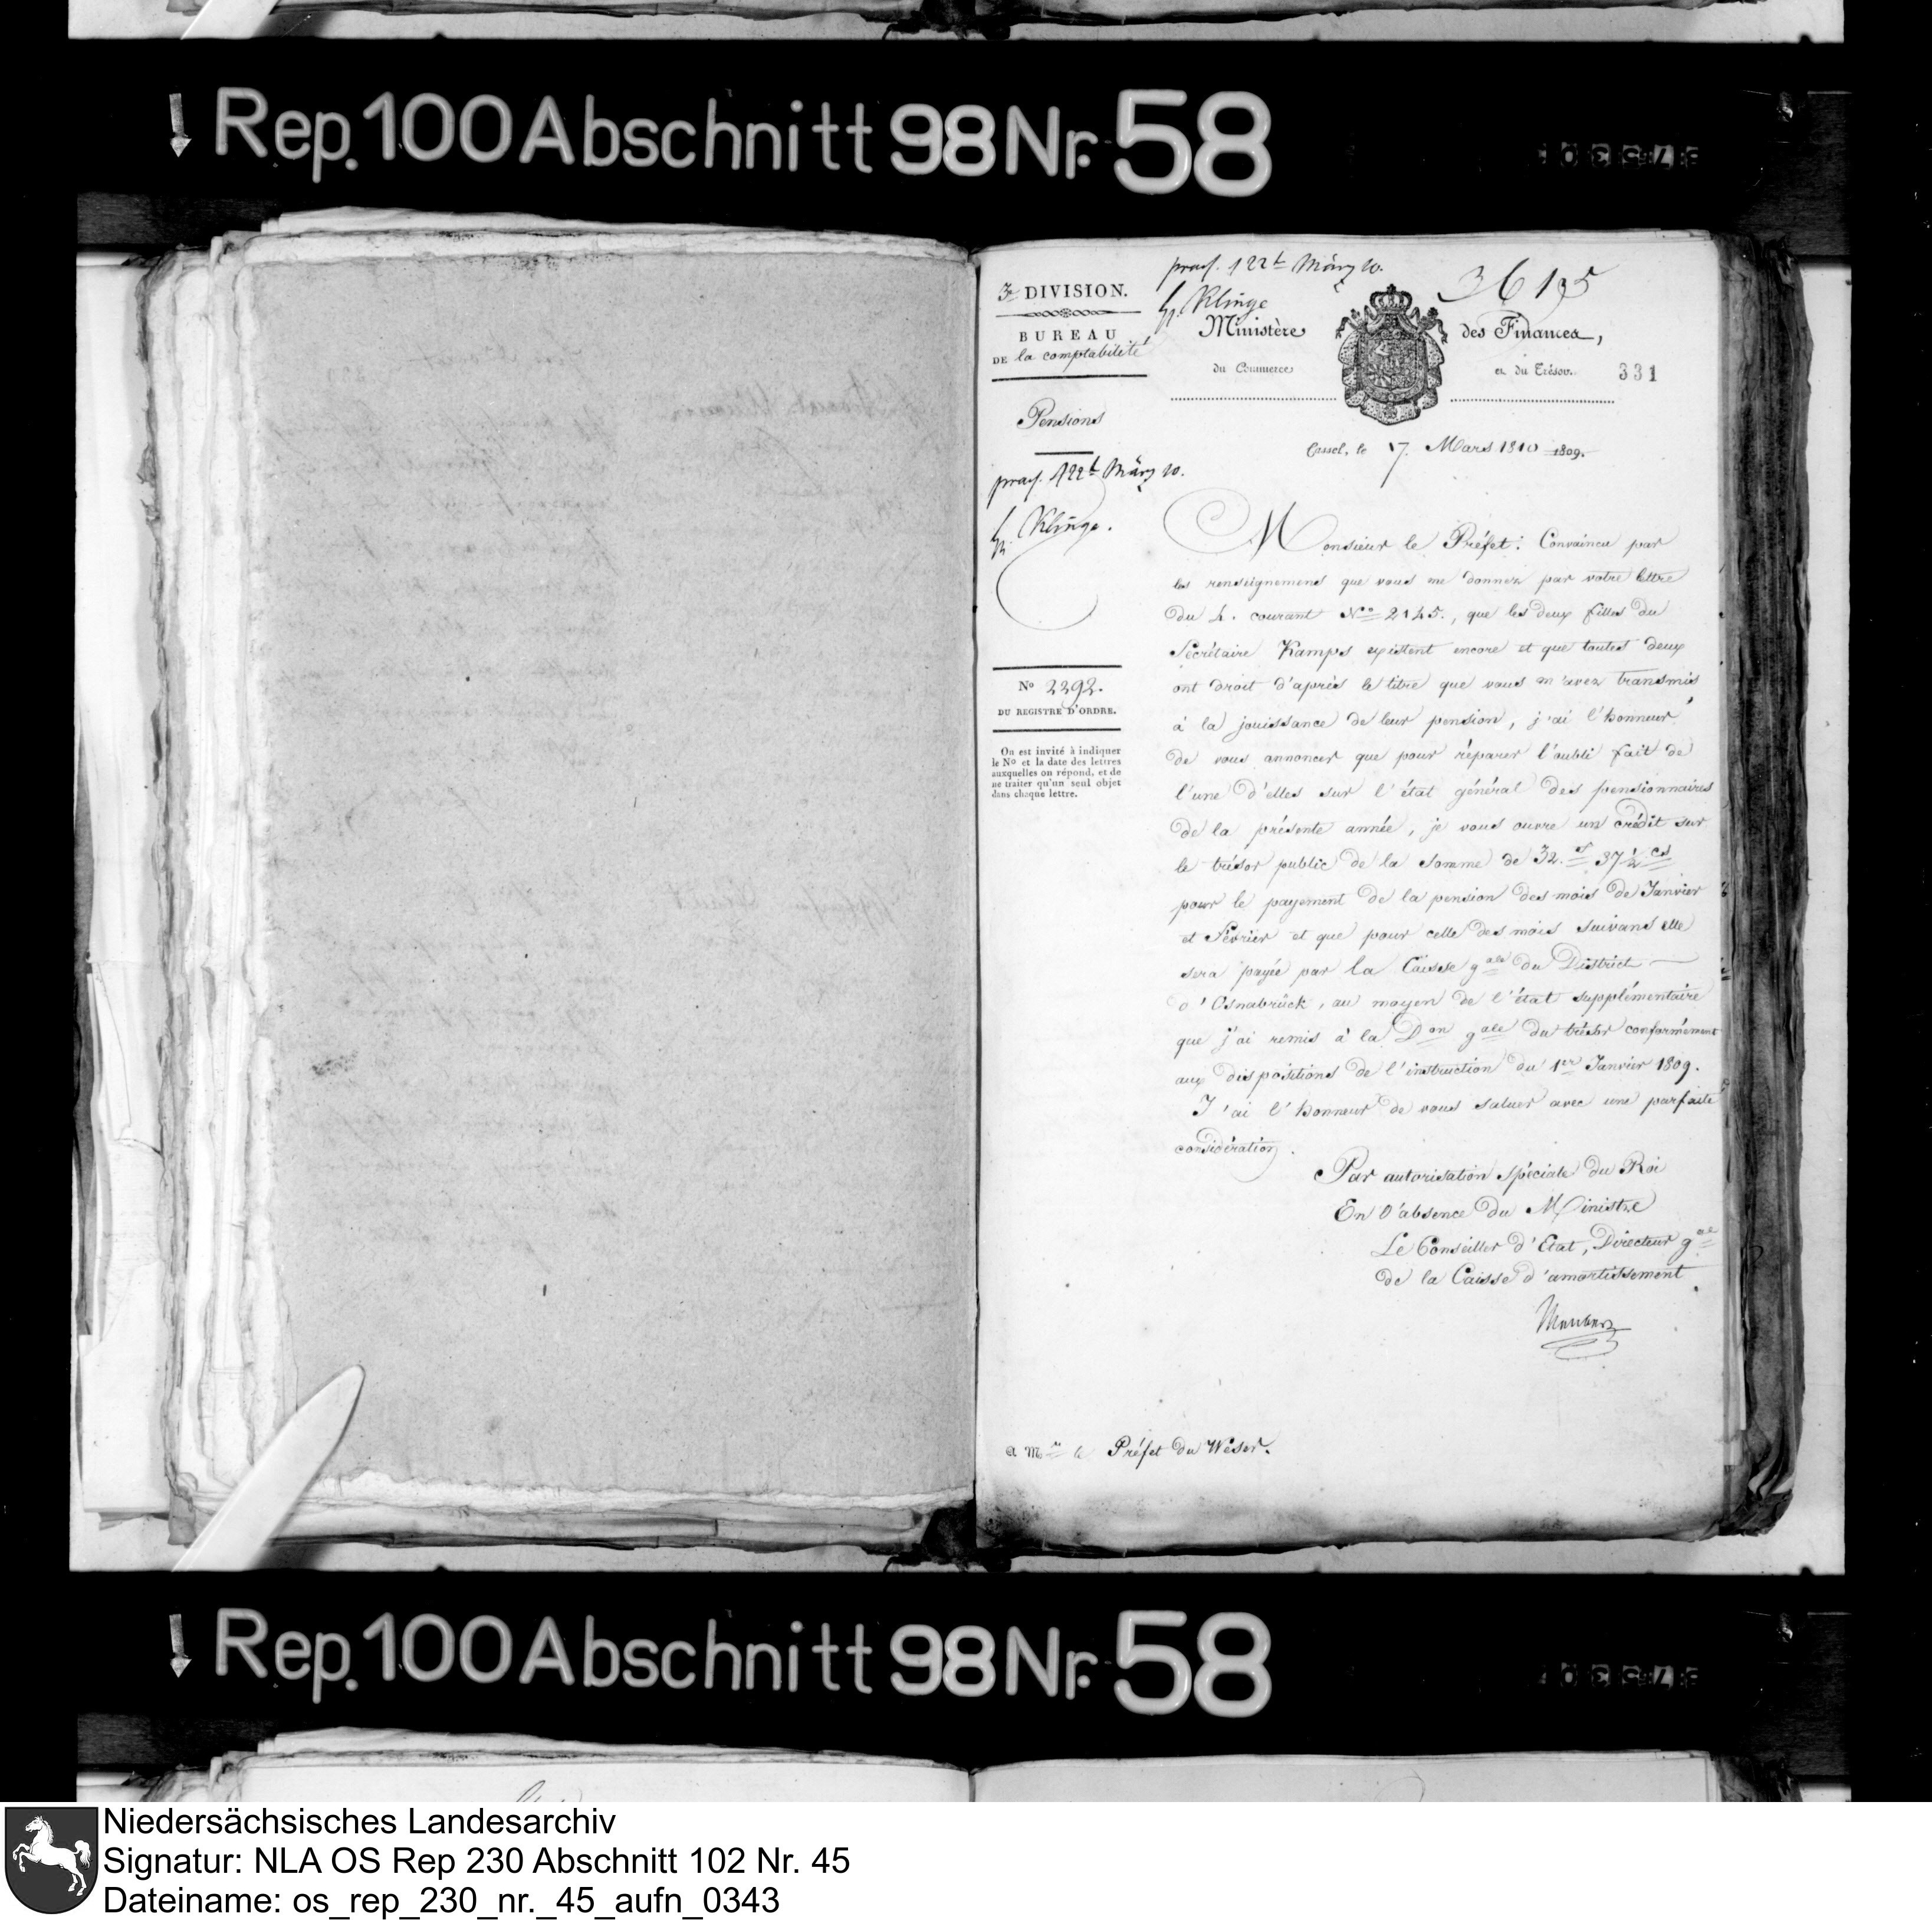 Rep. 100 Abschnitt 98 Nr. 58
praes. 22t März 10.
Klinge
3e DIVISION.
BUREAU
DE la comptabilité
Pensions
praes. 22t März 10.
Klinge.
No 2292.
DU REGISTRE D'ORDRE.
On est invité à indiquer
le No et la date des lettres
auxquelles on répond, et de
ne traiter qu'un seul objet
dans chaque lettre.
Ministère des Finances,
du Commerce et du Trésor.
331
Cassel, le 7. Mars 1810 1809.
Monsieur le Préfet: Convaincu par
les renseignemens que vous me donnez par votre lettre
du 4. courant No 2145., que les deux filles du
Sécrétaire Kamps existent encore et que toutes deux
ont droit d'après le titre que vous m'avez transmis
à la jouissance de leur pension, j'ai l'honneur
de vous annoncer que pour réparer l'oubli fait de
l'une d'elles sur l'état général des pensionnaires
de la présente année, je vous ouvre un crédit sur
le trésor public de la somme de 32.f 37½ cs
pour le payement de la pension des mois de Janvier
et Février et que pour celle des mois suivans elle
sera payée par la Caisse gale du District
d'Osnabrück, au moyen de l'état supplémentaire
que j'ai remis à la Don gale du trésor conformément
aux dispositions de l'instruction du 1er Janvier 1809.
J'ai l'honneur de vous saluer avec une parfaite
considération.
Par autorisation spéciale du Roi
En l'absence du Ministre
Le Conseiller d'Etat, Directeur gal
de la Caisse d'amortissement
a Mr le Préfet du Weser.
Rep. 100 Abschnitt 98 Nr. 58
Niedersächsisches Landesarchiv
Signatur: NLA OS Rep 230 Abschnitt 102 Nr. 45
Dateiname: os_rep_230_nr._45_aufn_0343